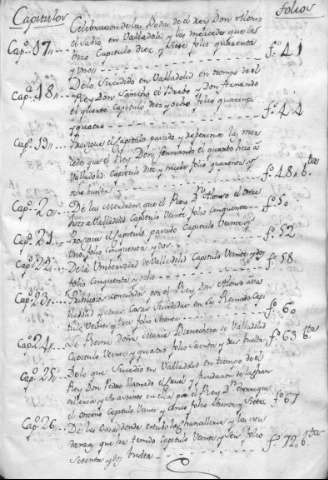 Capitulos folios
Celebracion de las Bodas de el rey Don Alonso
el sabio en Valladolid, y las mercedes que les
Cap.º 17 hizo Capitulo diez y siete folio quarenta
y uno f.º 41
De lo Sucedido en Valladolid en tiempo de el
Cap.º 18 Rey Don Sancho el Brabo y Don Fernando
el quarto Capitulo diez y ocho folio quarenta
y quatro f.º 44
Cap.º 19 Prosigue el Capitulo pasado y refierense las mer
cedes que el Rey Don fernando el quarto hizo a
Valladolid Capitulo diez y nueve folio quarenta y
ocho buelta f.º 48 b.ta
Cap.º 20 De las Mercedes que el Rey D.n Alonso el onze
hizo a Valladolid Capitulo Veinte folio cinquenta f.º 50
Cap.º 21 Prosigue el Capitulo pasado Capitulo Veinte y
uno folio cinquenta y dos f.º 52
Cap.º 22 De la Universidad de Valladolid Capitulo Veinte y dos
folio cinquenta y ocho f.º 58
Cap.º 23 Privilegios concedidos por el Rey Don Alonso a
y otras Cosas Sucedidas en su Reynado Cap
itulo Veinte y tres folio sesenta f.º 60
Cap.º 24 Doña Maria
Capitulo Veinte y quatro folio Sesenta y tres buelta f.º 63 b.ta
Cap.º 25 De lo que Sucedio en Valladolid en tiempo de el
Rey Don Pedro llamado el Cruel y
por el Rey D.n Enrrique
el Capitulo Veinte y cinco folio Sesenta y Siete f.º 67
Cap.º 26 De las
que ha tenido Capitulo Veinte y Seis folio
Setenta y dos buelta f.º 72 b.ta